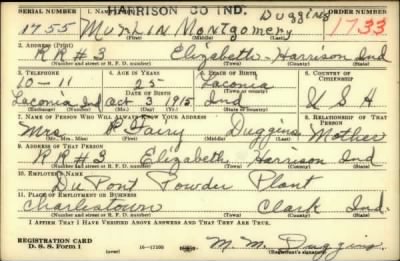 HARRISON CO IND.
SERIAL NUMBER 1. NAME Duggins ORDER NUMBER
1755 Murlin Montgomery 1733
2. ADDRESS (Print)
RR #3 Elizabeth - Harrison Ind
(Number and street or R. F. D. number) (Town) (County) (State)
3. TELEPHONE 4. AGE IN YEARS 5. PLACE OF BIRTH 6. COUNTRY OF CITIZENSHIP
10-11 25 Laconia
Laconia Ind Oct 3 1915 Ind U S A
7. NAME OF PERSON WHO WILL ALWAYS KNOW YOUR ADDRESS 8. RELATIONSHIP OF THAT PERSON
Mrs. R Fairy Duggins Mother
(Mr., Mrs., Miss) (First) (Middle) (Last)
9. ADDRESS OF THAT PERSON
RR #3 Elizabeth Harrison Ind
(Number and street or R. F. D. number) (Town) (County) (State)
10. EMPLOYER'S NAME
Du Pont Powder Plant
11. PLACE OF EMPLOYMENT OR BUSINESS
Charlestown Clark Ind.
(Number and street or R. F. D. number) (Town) (County) (State)
I AFFIRM THAT I HAVE VERIFIED ABOVE ANSWERS AND THAT THEY ARE TRUE.
REGISTRATION CARD
D. S. S. Form 1 16-17105 M. M. Duggins
(Registrant's signature)